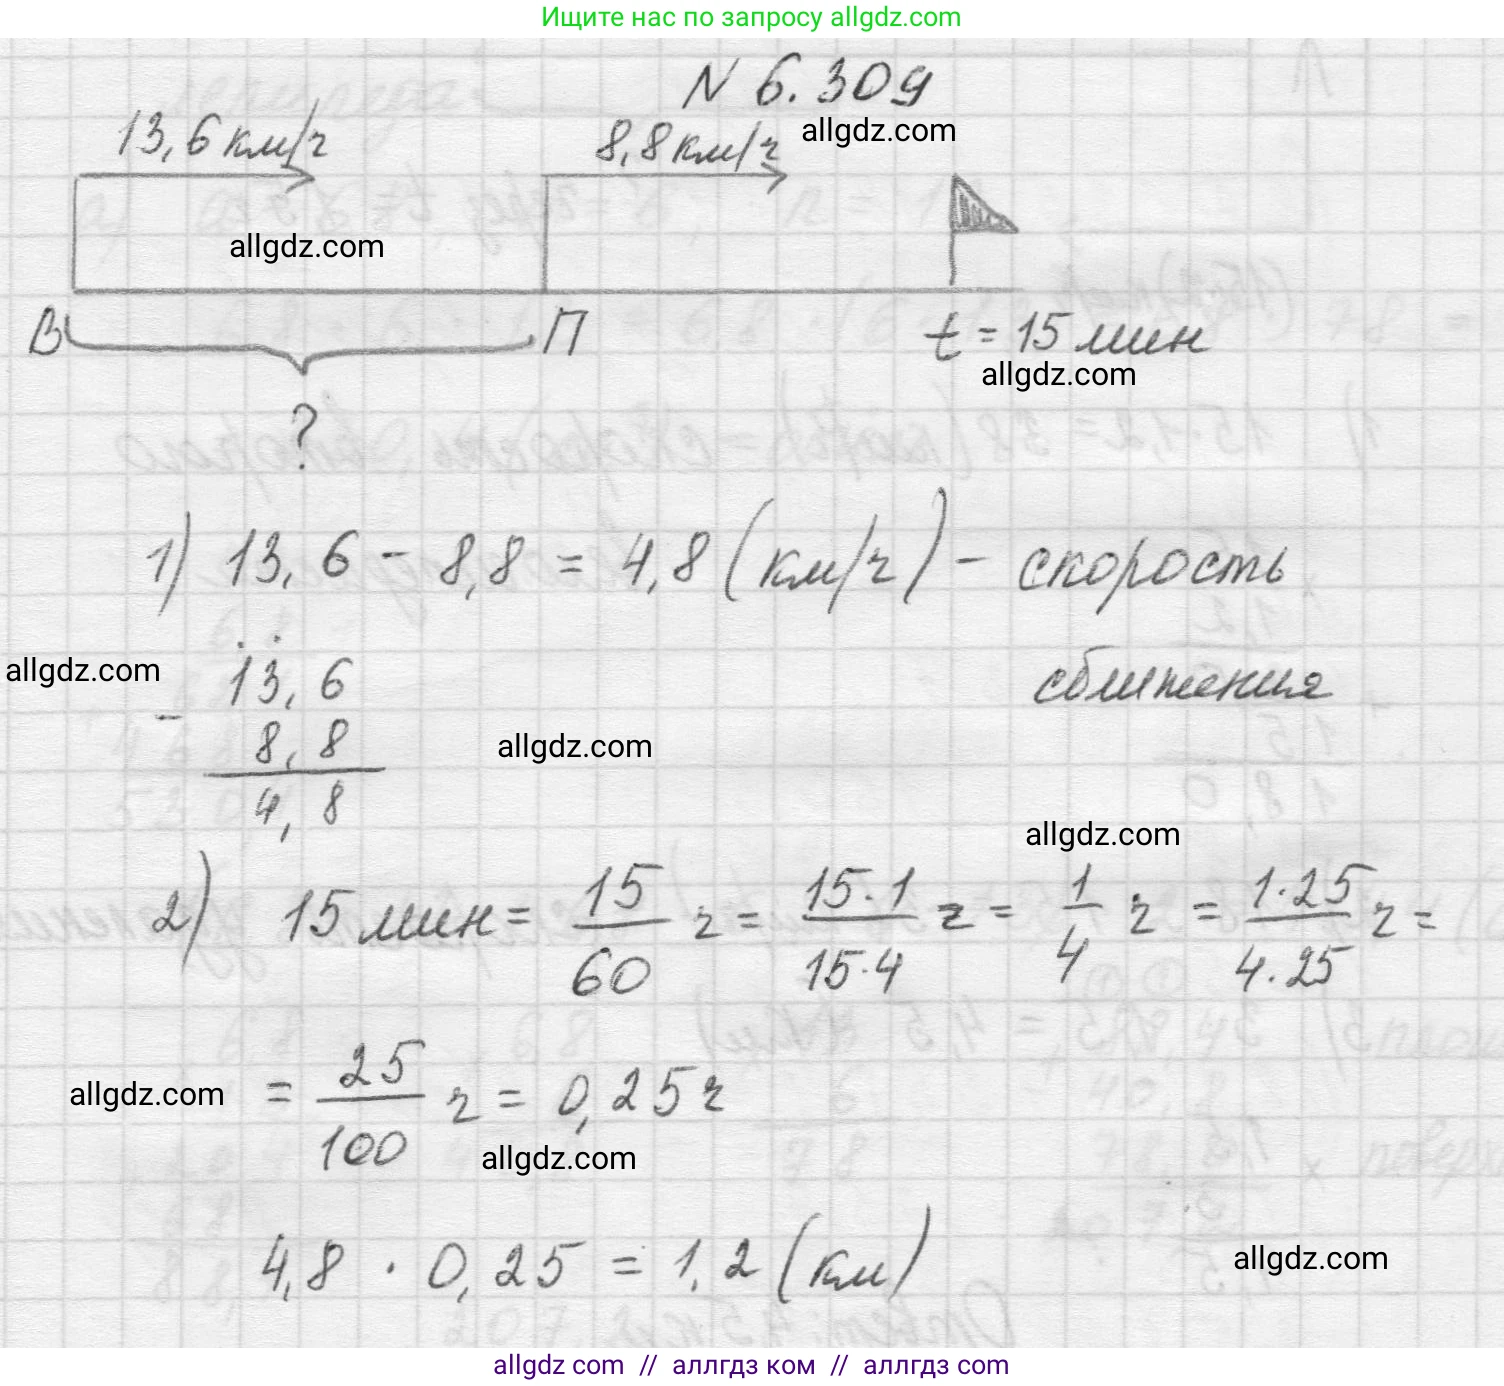 Ищите нас по запросу allgdz.com
N 6.309
13,6 км/ч 8,8 км/ч allgdz.com
allgdz.com
В П t = 15 мин
allgdz.com
?
1) 13,6 - 8,8 = 4,8 (км/ч) - скорость
сближения
allgdz.com
13,6
- 8,8
4,8
allgdz.com
allgdz.com
2) 15 мин = 15/60 ч = 15·1/15·4 ч = 1/4 ч = 1·25/4·25 ч =
= 25/100 ч = 0,25 ч
allgdz.com
allgdz.com
4,8 · 0,25 = 1,2 (км)
allgdz.com
allgdz com // аллгдз ком // аллгдз com